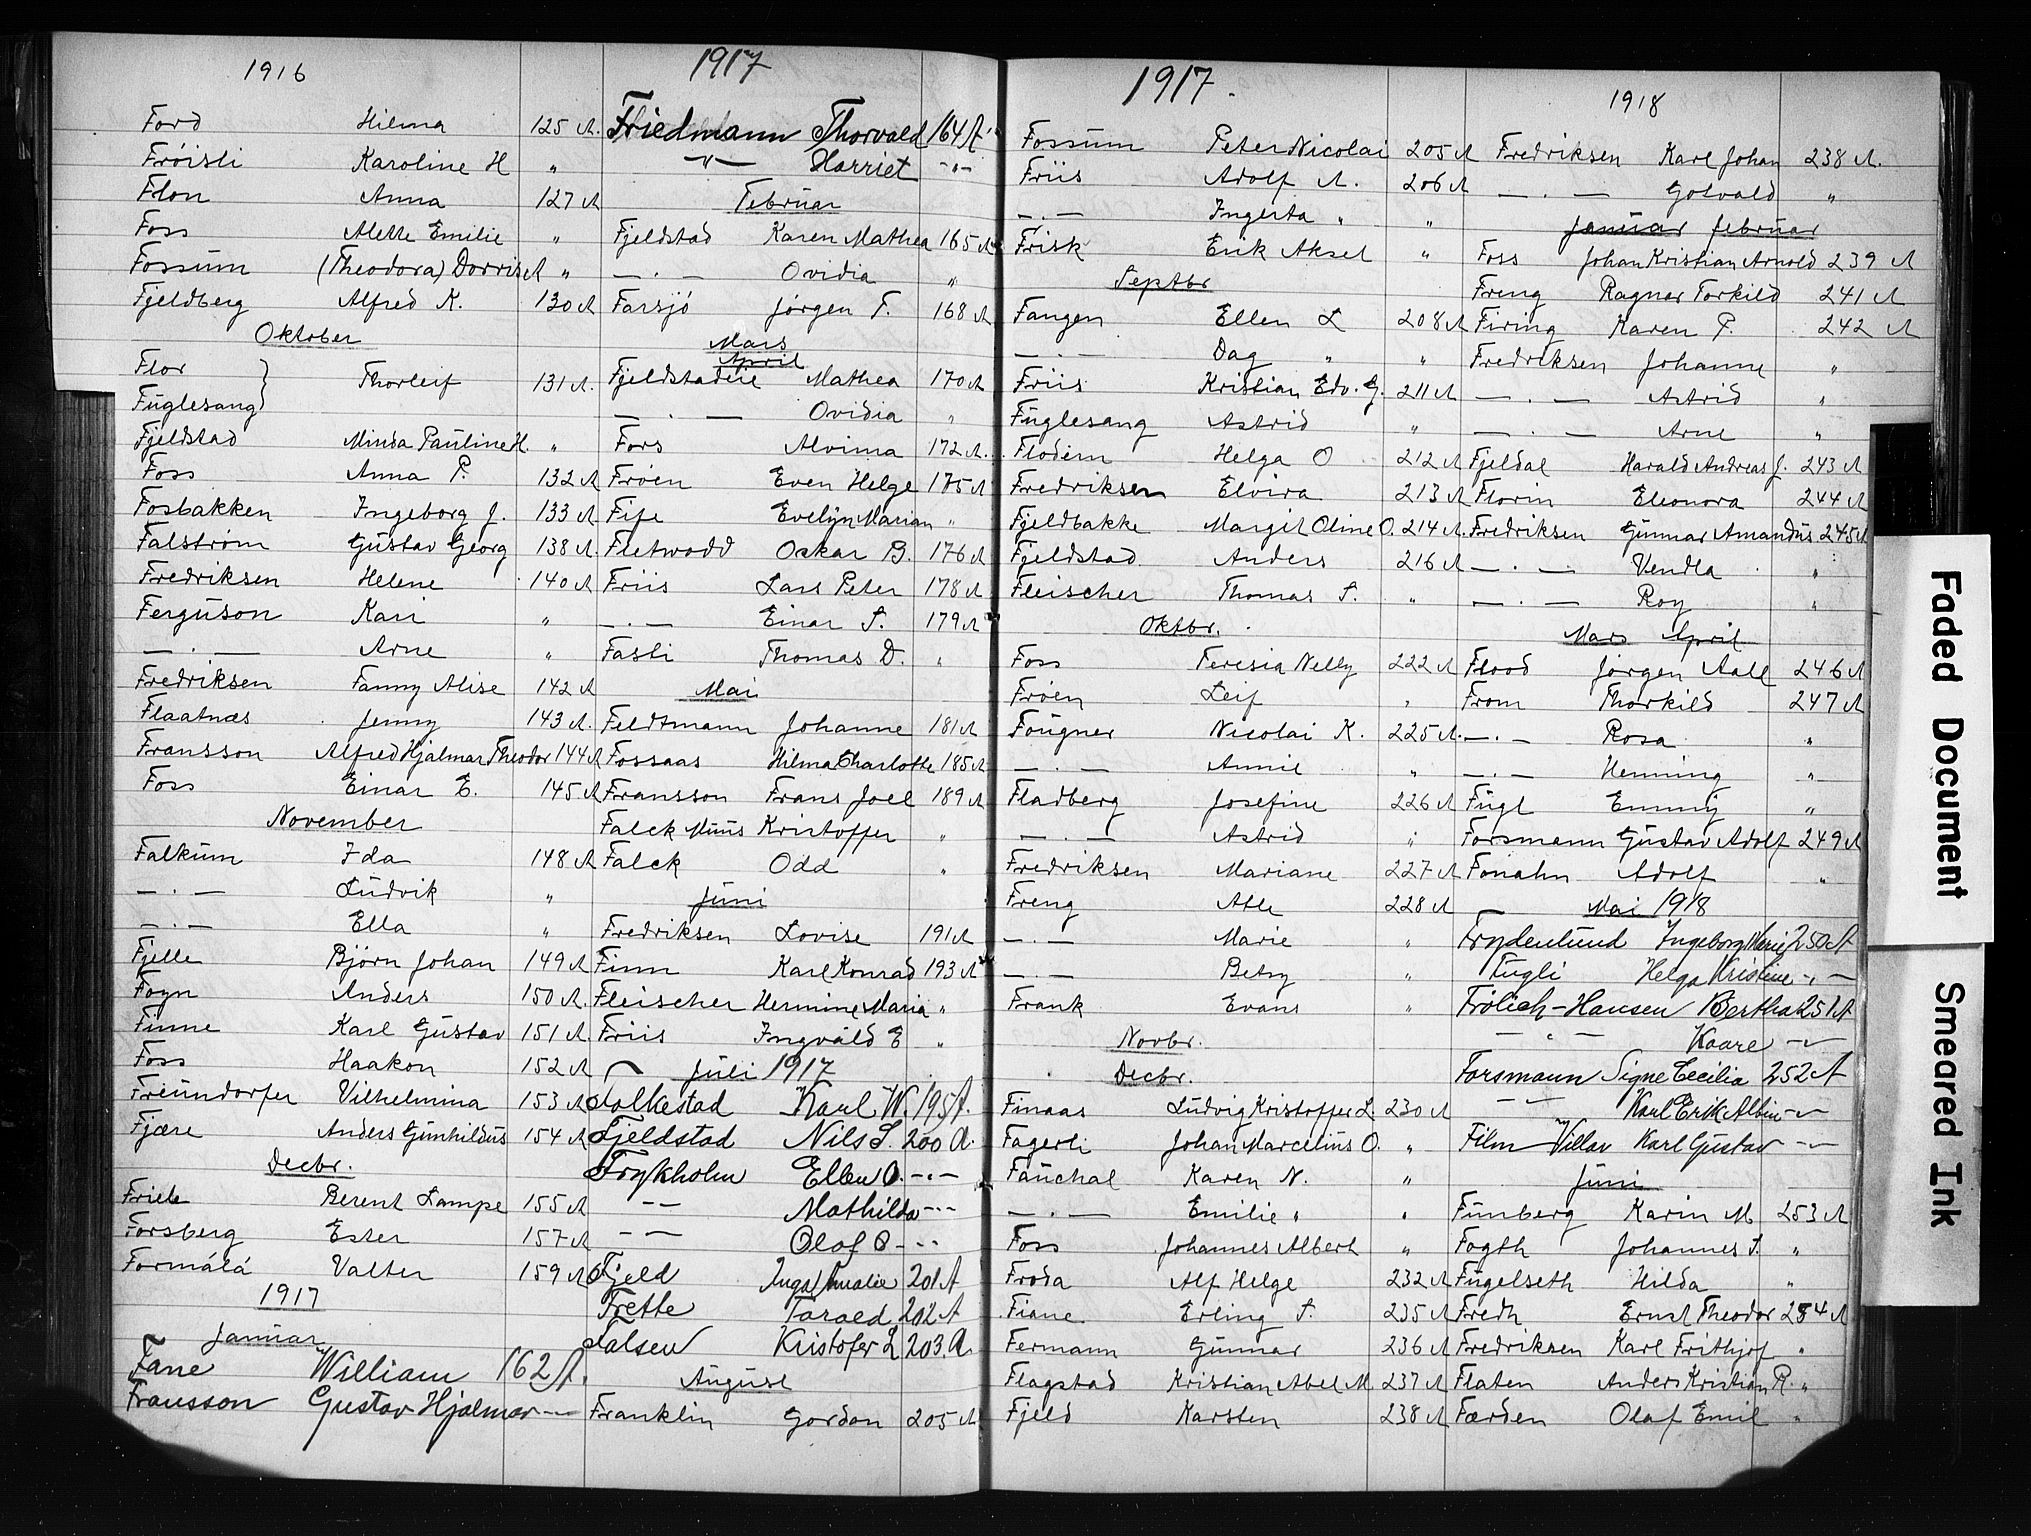 1916
Ford Hilma 125 A.
Frøisli Karoline H "
Flon Anna 127 A
Foss Alette Emilie "
Fossum (Theodora) Dorris A "
Fjeldberg Alfred K. 130 A
Oktober
Flor } Thorleif 131 A.
Fuglesang }
Fjeldstad Minda Pauline H. "
Foss Anna P. 132 A
Fosbakken Ingeborg J. 133 A
Falstrøm Gustav Georg 138 A.
Fredriksen Helene 140 A
Ferguson Kari "
— . — Arne "
Fredriksen Fanny Alise 142 A
Flaatnæs Jenny 143 A.
Fransson Alfred Hjalmar Theodor 144 A
Foss Einar E. 145 A
November
Falkum Ida 148 A
— . — Ludvik "
— . — Ella "
Fjelle Bjørn Johan 149 A
Foyn Anders 150 A.
Finne Karl Gustav 151 A.
Foss Haakon 152 A
Freundorfer Vilhelmina 153 A
Fjære Anders Gunhildus 154 A
Decbr.
Friele Berent Lampe 155 A
Forsberg Ester 157 A
Formálá Valter 159 A
1917
Januar
Fane William 162 A.
Fransson Gustav Hjalmar —"—
1917
Friedmann Thorvald 164 A
—"— Harriet -"-
Februar
Fjeldstad Karen Mathea 165 A
— . — Ovidia "
Farsjö Jørgen F. 168 A
Mars
April
Fjeldstadeie Mathea 170 A
— . — Ovidia "
Fors Alvima 172 A.
Frøen Even Helge 175 A
Fife Evelyn Marian "
Fletwodd Oskar B. 176 A
Friis Lars Peter 178 A
— . — Einar S. 179 A
Fasli Thomas D. "
Mai
Feldtmann Johanne 181 A
Fossaas Hilma Charlotte 185 A
Fransson Frans Joel 189 A
Falck Muus Kristoffer "
Falck Odd "
Juni
Fredriksen Lovise 191 A
Finn Karl Konrad 193 A
Fleischer Hermine Maria "
Friis Ingvald E "
Juli 1917
Folkestad Karl W. 195 A.
Fjeldstad Nils S. 200 A.
Frykholm Ellen O. -"-
— — Mathilda -"-
— — Olaf O -"-
Fjeld Inga Amalie 201 A
Frette Tarald 202 A
Falsen Kristofer L 203. A.
August
Franklin Gordon 205 A
1917.
Fossum Peter Nicolai 205 A
Friis Adolf A. 206 A
— . — Ingerta " "
Frisk Erik Aksel "
Septbr
Fangen Ellen L 208 A
— . — Dag " "
Friis Kristian Edv. G. 211 A
Fuglesang Astrid "
Flodem Helga O 212 A
Fredriksen Elvira 213 A
Fjeldbakke Margit Oline O. 214 A.
Fjeldstad Anders 216 A
Fleischer Thomas S. "
Oktbr.
Foss Teresia Nelly 222 A
Frøen Leif "
Fougner Nicolai K. 225 A.
— . — Annie "
Fladberg Josefine 226 A
— . — Astrid "
Fredriksen Mariane 227 A
Freng Atle 228 A
— . — Marie "
— . — Betsy "
Frank Evans "
Novbr.
Decbr.
Finaas Ludvig Kristoffer L. 230 A
Fagerli Johan Marcelius O. "
Fauchal Karen N. "
— . — Emilie " "
Foss Johannes Albert "
Froda Alf Helge 232 A
Fiane Erling S. 235 A
Fermann Gunnar 236 A
Flagstad Kristian Abel M. 237 A
Fjeld Karsten 238 A
1918
Fredriksen Karl Johan 238 A.
— . — Gotvald "
Januar februar
Foss Johan Kristian Arnold 239 A
Freng Ragnar Torkild 241 A
Firing Karen P. 242 A
Fredriksen Johanne "
— . — Astrid "
— . — Arne "
Fjeldal Harald Andreas J. 243 A
Florin Eleonora 244 A
Fredriksen Gunnar Amandus 245 A
— . — Vendla "
— . — Roy "
Mars April
Flood Jørgen Aall 246 A
From Thorkild 247 A
— . — Rosa "
— . — Henning "
Fugl Emmy "
Forsmann Gustav Adolf 249 A
Fonahn Adolf "
Mai 1918
Frydenlund Ingeborg Marie 250 A
Fugli Helga Kristine -"-
Frölich-Hansen Bertha 251 A
— " — Kaare -"-
Forsmann Signe Cecilia 252 A
—"— Karl Erik Albin -"-
Film Villav Karl Gustav -"-
Juni
Funberg Karin M 253 A
Fogth Johannes S. "
Fugelseth Hilda "
Fredh Ernst Theodor 254 A
Fredriksen Karl Frithjof "
Flaten Anders Kristian R. "
Færden Olaf Emil "
Faded Document
Smeared Ink